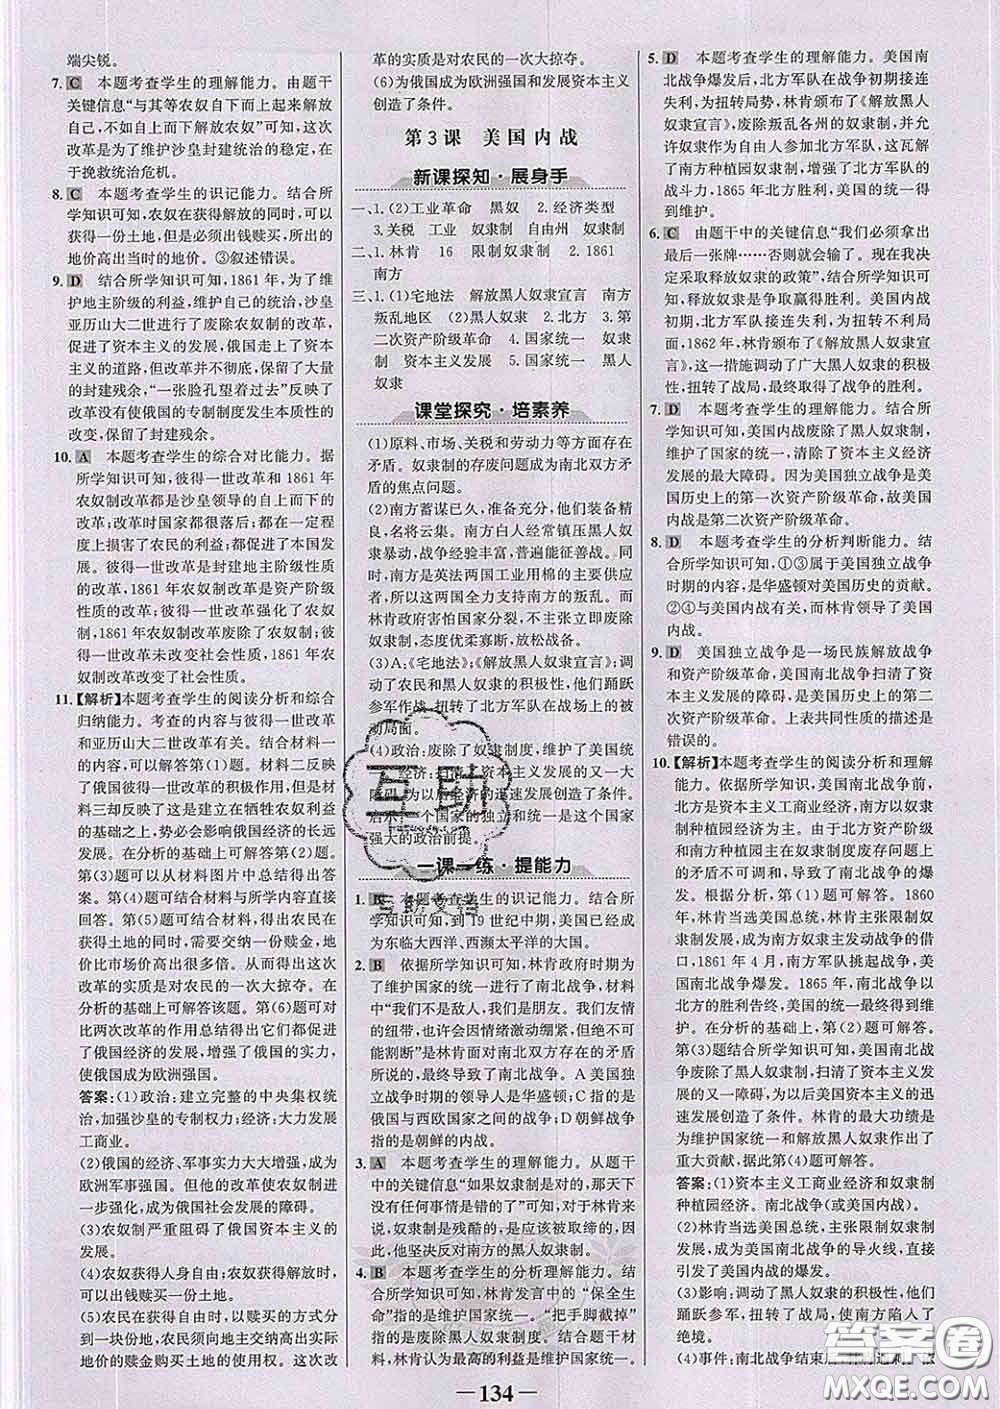 端尖锐。
7. C 本题考查学生的理解能力。由题干
关键信息“与其等农奴自下而上起来解放
自己，不如自上而下解放农奴”可知，这次
改革是为了维护沙皇封建统治的稳定，在
于挽救统治危机。
8. C 本题考查学生的识记能力。结合所
学知识可知，农奴在获得解放的同时，可以
获得一份土地，但是必须出钱赎买，所出的
地价高出当时的地价。③叙述错误。
9. D 结合所学知识可知，1861年，为了维
护地主阶级的利益，维护自己的统治，沙皇
亚历山大二世进行了废除农奴制的改革，
促进了资本主义的发展，俄国走上了资本
主义的道路，但改革并不彻底，保留了大量
的封建残余，“一张脸孔望着过去”反映了
改革没有使俄国的专制制度发生本质性的
改变，保留了封建残余。
10. A 本题考查学生的综合对比能力。据
所学知识可知，彼得一世改革和1861年
农奴制改革都是沙皇领导的自上而下的
改革；改革时国家都很落后；都在一定程
度上损害了农民的利益；都促进了本国发
展。彼得一世改革是封建地主阶级性质
的改革，1861年农奴制改革是资产阶级
性质的改革；彼得一世改革强化了农奴
制，1861年农奴制改革废除了农奴制；彼
得一世改革未改变社会性质，1861年农
奴制改革改变了社会性质。
11.【解析】本题考查学生的阅读分析和综合
归纳能力。考查的内容与彼得一世改革
和亚历山大二世改革有关。结合材料一
的内容，可以解答第(1)题。材料二反映了
彼得一世改革的积极作用，但是材
料三却反映了这是建立在牺牲农奴利益
的基础上，势必会影响俄国经济的长远
发展。在分析的基础上可解答第(2)题。
第(3)题可以从材料图片中总结得出答
案。第(4)题可结合材料与所学内容直接
得出。第(5)题可结合材料，得出农民在
获得土地的同时，需要交纳一份赎金，地
价比市场价高出很多倍。由此得出这次
改革的实质是对农民的一次大掠夺。在
分析的基础上可解答该题。第(6)题可对
比两次改革的作用总结得出它们都促进
了俄国经济的发展，增强了俄国的实力，
使俄国成为欧洲强国。
答案：(1)政治：建立完整的中央集权统
治，加强沙皇的专制权力；经济：大力发展
工商业。
(2)俄国的经济、军事实力大大增强，成为
欧洲军事强国。但他的改革使农奴制进
一步强化，成为俄国社会发展的障碍。
(3)农奴制严重阻碍了俄国资本主义的
发展。
(4)农奴获得人身自由；农奴获得解放时，
可以出钱赎买一份土地。
(5)农民在获得自由时，以赎买的方式分
到一块土地，农民须向地主交纳高出实际
地价的赎金购买土地的使用权。这次改
革的实质是对农民的一次大掠夺。
(6)为俄国成为欧洲强国和发展资本主义
创造了条件。
第3课 美国内战
新课探知·展身手
一、1.(2)工业革命 黑奴 2.经济类型
3.关税 工业 奴隶制 自由州 奴隶制
二、1.林肯 16 限制奴隶制 2.1861
南方
三、1.(1)宅地法 解放黑人奴隶宣言 南方
叛乱地区 (2)黑人奴隶 2.北方 3.第
二次资产阶级革命 4.国家统一 奴隶
制 资本主义发展 5.国家统一 黑人
奴隶
课堂探究·培素养
(1)原料、市场、关税和劳动力等方面存在
矛盾。奴隶制的存废问题成为南北双方矛
盾的焦点问题。
(2)南方蓄谋已久，准备充分，他们装备精
良，名将云集。南方白人经常镇压黑人奴
隶暴动，战争经验丰富，普遍能征善战。同
时，南方是英法两国工业用棉的主要供应
者，所以这两国全力支持南方的叛乱。而
林肯政府害怕国家分裂，不主张立即废除
奴隶制，态度优柔寡断，放松战备。
(3)A：《宅地法》；《解放黑人奴隶宣言》，调动
了农民和黑人奴隶的积极性，他们踊跃
参军作战，扭转了北方军队在战场上的被
动局面。
(4)政治：废除了奴隶制度，维护了美国统
一；经济：扫清了资本主义发展的又一大
障碍，为以后经济的迅速发展创造了条件。
启示：一个国家的独立和统一是这个国家
强大的政治前提。
一课一练·提能力
1. B 本题考查学生的识记能力。结合所
学知识可知，到19世纪中期，美国已经成
为东临大西洋、西濒太平洋的大国。
2. B 依据所学知识可知，林肯政府时期为
了维护国家的统一进行了南北战争，材料
中“我们不是敌人，我们是朋友。友情的
纽带，也许会因情绪激动绷紧，但绝不可
能割断”是林肯面对南北双方存在的矛盾
所说的，最后酿成了南北战争。A美国独
立战争时期的领导人是华盛顿；C指的是
俄国与西欧国家之间的战争；D朝鲜战争
指的是朝鲜的内战。
3. A 本题考查学生的理解能力。从题干
中的关键信息“如果奴隶制是对的，那天下
没有任何事情是错的了”可知，林肯向来认
为，奴隶制是残酷的，是应该被取缔的，因
此，他坚决反对南方的黑人奴隶制。
4. B 本题考查学生的分析理解能力。结
合所学知识可知，林肯发言中的“保全生
命”指的是维护国家统一，“把手脚截掉”
指的是废除黑人奴隶制度。结合题干材
料，林肯认为最高的利益是维护国家统一。
5. D 本题考查学生的理解能力。美国南
北战争爆发后，北方军队在战争初期接连
失利，为扭转局势，林肯颁布了《解放黑人
奴隶宣言》，废除叛乱各州的奴隶制，并
允许奴隶作为自由人参加北方军队，这瓦解
了南方种植园奴隶制，增强了北方军队的
战斗力，1865年北方胜利，美国的统一得
到维护。
6. C 由题干中的关键信息“我们必须拿出
最后一张牌……否则就会输了。现在我决
定采取释放奴隶的政策”，结合所学知识可
知，释放奴隶是为了争取赢得胜利。美国内战
初期，北方军队接连失利，为扭转不利
局面，1862年，林肯颁布了《解放黑人奴隶宣
言》，这一措施调动了广大黑人奴隶的积极
性，扭转了战局，最终取得了战争的胜利。
7. D 本题考查学生的理解能力。结合所
学知识可知，美国内战废除了奴隶制，维护
了国家的统一，清除了美国资本主义经济
发展的最大障碍。因为美国独立战争是
美国历史上的第一次资产阶级革命，故美国
内战是第二次资产阶级革命。
8. D 本题考查学生的分析判断能力。结
合所学知识可知，①③属于美国独立战争
时期的内容，是华盛顿对美国历史的贡献。
②④与美国内战有关，而林肯领导了美国
内战。
9. D 美国独立战争是一场民族解放战争
和资产阶级革命，美国南北战争扫清了资
本主义发展的障碍，是美国历史上的第二
次资产阶级革命。上表共同性质的描述是
错误的。
10.【解析】本题考查学生的阅读分析和理解
能力。依据所学知识，美国南北战争前，
北方是资本主义工商业经济，南方以奴隶
制种植园经济为主。由于北方资产阶级
和南方种植园主在奴隶制度废存问题上
存在矛盾，导致了南北战争的爆发。根据
分析，第(1)题可解答。1860年，
林肯当选美国总统，林肯主张限制奴隶制
发展，成为南方奴隶主发动战争的借
口，1861年4月，南方军队挑起战争，美国
南北战争爆发。1865年，南北战争以
北方的胜利告终，美国的统一最终得到维护。
在分析的基础上，第(2)题可解答。
第(3)题结合所学知识可知，美国南北战
争废除了黑人奴隶制，维护了国家统一，
扫清了资本主义发展的障碍，为资本主义的迅
速发展创造了条件。林肯的最大功绩是
为维护国家统一和解放黑人奴隶作出了
重大贡献，据此第(4)题可解答。
答案：(1)资本主义工商业经济和奴隶制
种植园经济。南北战争(或美国内战)
(2)林肯当选美国总统，主张限制奴隶制
发展，成为美国南北战争的导火线，直接
引发了美国内战的爆发。
(3)影响：调动了黑人奴隶的积极性，他们
踊跃参军，扭转了战局，使南方陷入了
绝境。
(4)事件：南北战争结束后，林肯遇刺。
互助
互助文库
答案圈
MXQE.COM
— 134 —